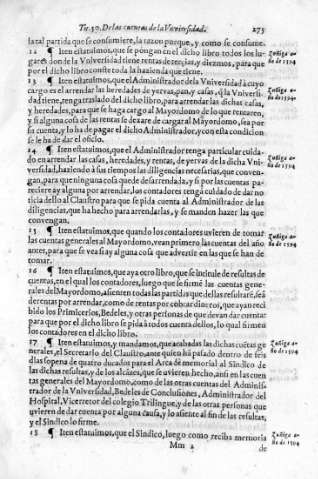 Tit. 50. De las cuentas de la Vniuersidad. 275
la tal partida que se consumiere, la razon porque, y como se consume.
12 ¶ Iten estatuimos, que se põngan en el dicho libro todos los lu-
gares donde la Vniuersidad tiene rentas de tercias, y diezmos, para que
por el dicho libro conste toda la hazienda que tiene.
Zuñiga a-
ño de 1594
13 ¶ Iten estatuimos, que el Administrador dela Vniuersidad à cuyo
cargo es el arrendar las heredades, yeruas, pan, y casas, q̃ la Vniuersi-
dad tiene, tenga traslado del dicho libro, para arrendar las dichas casas,
y heredades, para que se haga cargo al Mayordomo de lo que rentaren,
y si alguna cosa de las rentas dexare de cargar al Mayordomo, sea por
su cuenta, y lo ha de pagar el dicho Administrador, y con esta condicion
se le ha de dar el oficio.
Zuñiga a-
ño de 1594
14 ¶ Iten estatuimos, que el Administrador tenga particular cuida-
do en arrendar las casas, heredades, y rentas, de yeruas de la dicha Vni-
uersidad, haziendo à sus tiempos las diligencias necesarias, que conuen-
gan, para que ninguna cosa quede desarrendada, y si por las cuentas pa-
reciere ay alguna por arrendar, los contadores tengã cuidado de dar no-
ticia dello al Claustro para que se pida cuenta al Administrador de las
diligencias, que ha hecho para arrendarlas, y se manden hazer las que
conuengan.
Zuñiga a-
ño de 1594
15 ¶ Iten estatuimos, que quando los contadores uvieren de tomar
las cuentas generales al Mayordomo, vean primero las cuentas del año
antes, para que se vea si ay alguna cosa que aduertir en las que se han de
tomar.
Zuñiga a-
ño de 1594
16 ¶ Iten estatuimos, que aya otro libro, que se intitule de resultas de
quentas, en el qual los contadores, luego que se firmẽ las cuentas gene-
rales del Mayordomo, asienten todas las partidas que dellas resultarẽ, asi
de rentas por arrendar, como de rentas por cobrar, que ayan reci
bido los Primicerios, Bedeles, y otras personas de que deuan dar cuenta:
para que por el dicho libro se pida à todos cuenta dellos, lo qual firmen
los contadores en el dicho libro.
17 ¶ Iten estatuimos, y mandamos, que acabadas las dichas cuẽtas ge
nerales, el Secretario del Claustro, ante quien há pasado dentro de seis
dias so pena de quatro ducados para el Arca dè memorial al Sindico de
las dichas resultas, y de los alcãces, que se uvieren hecho, ansi en las cuen
tas generales del Mayordomo, como de las otras cuentas del Adminis-
trador de la Vniuersidad, Bedeles de Conclusiones, Administrador del
Hospital, Vicerretor del colegio Trilingue, y de las otras personas que
uvieren de dar cuenta por alguna causa, y lo asiente al fin de las resultas,
y el Sindico lo firme.
Zuñiga a-
ño de 1594
18 ¶ Iten estatuimos, que el Sindico, luego como reciba memoria
Zuñiga a-
ño de 1594
Mm 2 de